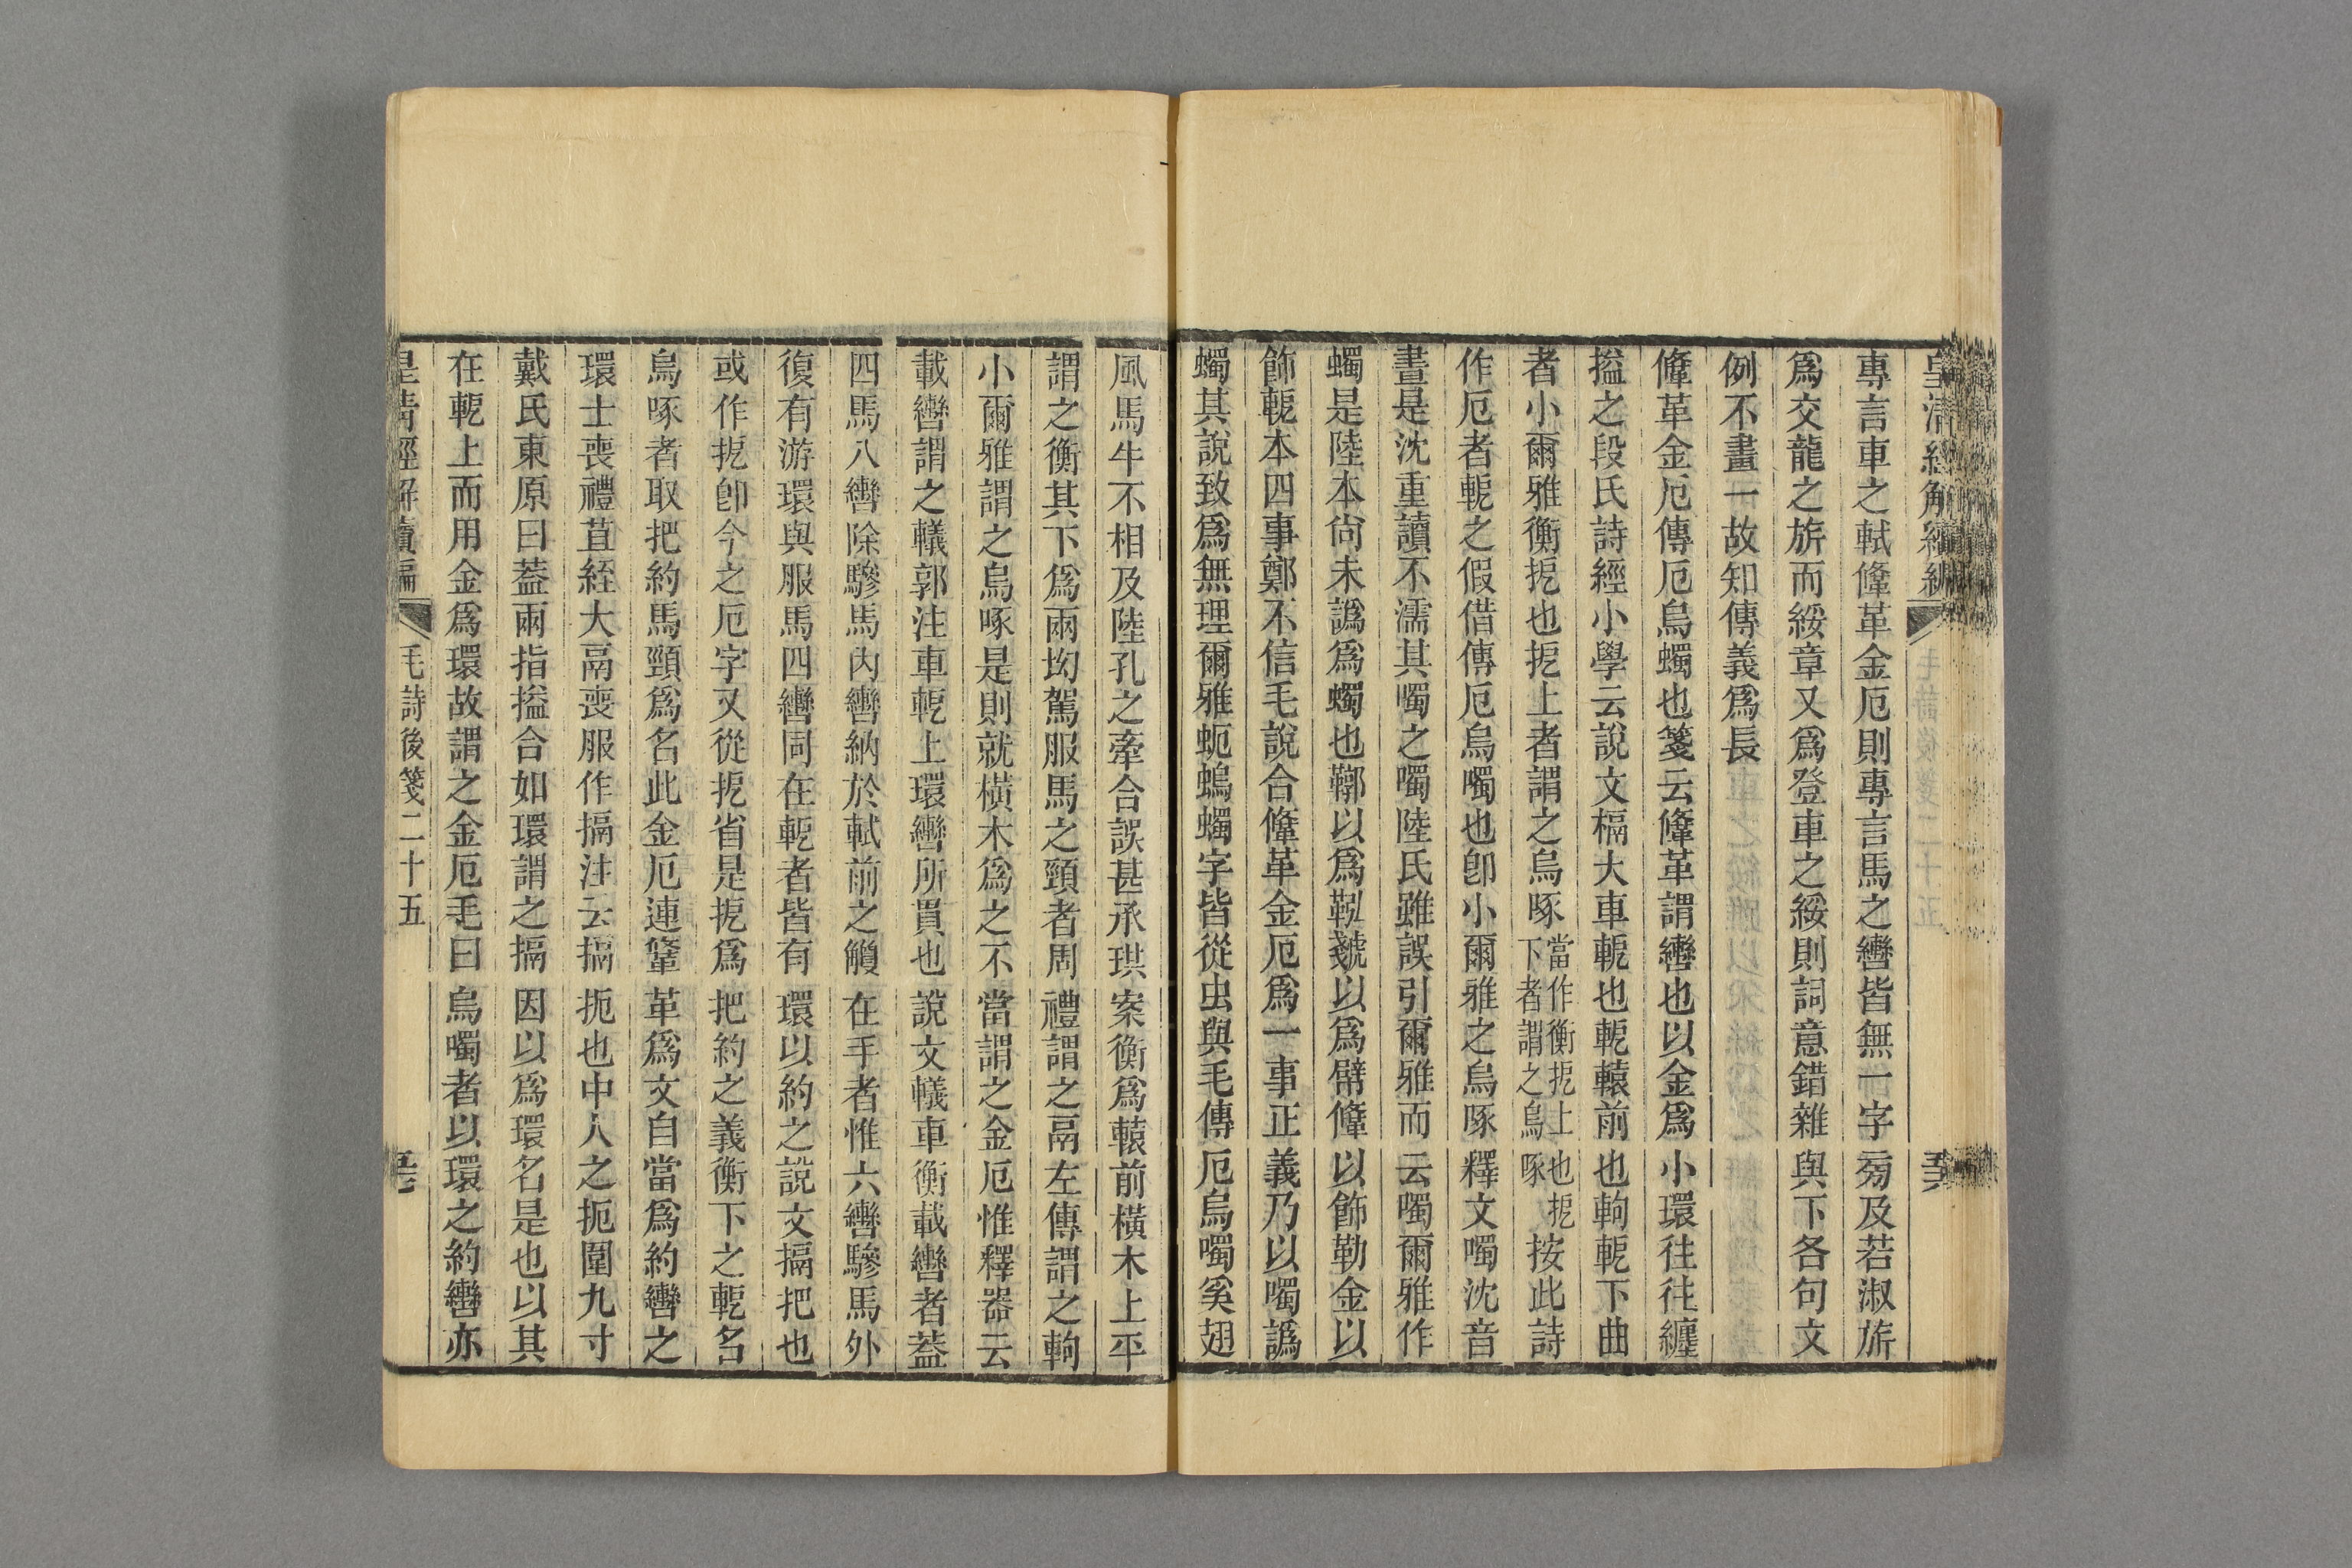 皇清經解續編
專言車之軾鞗革金厄則專言馬之轡皆無一字㫄及若淑旂
爲交龍之旂而綏章又爲登車之綏則詞意錯雜與下各句文
例不畫一故知傳義爲長
鞗革金厄傳厄烏蠋也箋云鞗革謂轡也以金爲小環往往纏
搤之段氏詩經小學云說文槅大車軛也軶轅前也軥軶下曲
者小爾雅衡扼也扼上者謂之烏啄當作衡扼上也扼下者謂之烏啄按此詩
作厄者軶之假借傳厄烏噣也卽小爾雅之烏啄釋文噣沈音
晝是沈重讀不濡其噣之噣陸氏雖誤引爾雅而云噣爾雅作
蠋是陸本尙未譌爲蠋也鞹以爲鞃虪以爲幦鞗以飾勒金以
飾軶本四事鄭不信毛說合鞗革金厄爲一事正義乃以噣譌
蠋其說致爲無理爾雅蚅螐蠋字皆從虫與毛傳厄烏噣奚翅
風馬牛不相及陸孔之牽合誤甚承珙案衡爲轅前橫木上平
謂之衡其下爲兩坳駕服馬之頸者周禮謂之鬲左傳謂之軥
小爾雅謂之烏啄是則就橫木爲之不當謂之金厄惟釋器云
載轡謂之轙郭注車軶上環轡所貫也說文轙車衡載轡者蓋
四馬八轡除驂馬內轡納於軾前之觼在手者惟六轡驂馬外
復有游環與服馬四轡同在軶者皆有環以約之說文搹把也
或作扼卽今之厄字又從扼省是扼爲把約之義衡下之軶名
烏啄者取把約馬頸爲名此金厄連鞗革爲文自當爲約轡之
環士喪禮苴絰大鬲喪服作搹注云搹扼也中人之扼圍九寸
戴氏東原曰蓋兩指搤合如環謂之搹因以爲環名是也以其
在軶上而用金爲環故謂之金厄毛曰烏噣者以環之約轡亦
皇清經解續編 毛詩後箋二十五